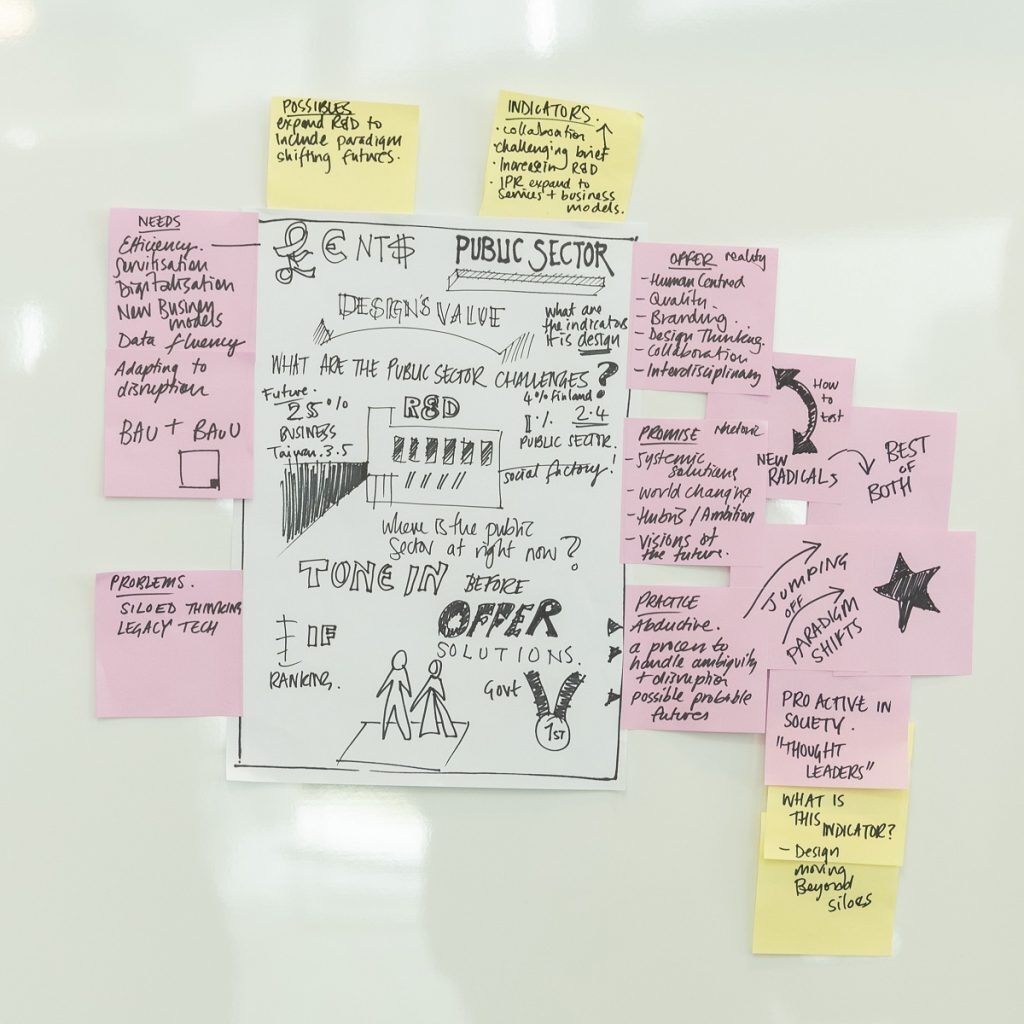 POSSIBLES
expand R&D to
include paradigm
shifting futures.
INDICATORS.
• collaboration
• challenging brief
• Increase in R&D
• IPR expand to
services + business
models.
NEEDS
Efficiency.
Servitisation
Digitalisation
New Business
models
Data fluency
Adapting to
disruption
BAU + BAUU
PROBLEMS.
SILOED THINKING
LEGACY TECH
€NT$
PUBLIC SECTOR
DESIGN'S VALUE
what are
the indicators
it is design
WHAT ARE THE PUBLIC SECTOR CHALLENGES?
Future.
25%
BUSINESS
Taiwan 3.5
R&D
4% Finland
1% 2.4
PUBLIC SECTOR!
social factory!
Where is the public
Sector at right now?
TONE IN BEFORE
OFFER
SOLUTIONS.
IF
RANKING.
Govt
1ST
OFFER reality
- Human Centred
- Quality.
- Branding.
- Design Thinking.
- Collaboration
- Interdisciplinary
How
to
test
NEW
RADICALS
BEST
OF
BOTH
PROMISE rhetoric
- Systemic
solutions
- World changing
- Hubris / Ambition
- Visions of
the future.
JUMPING
OFF
PARADIGM
SHIFTS
PRACTICE
Abductive.
a process to
handle ambiguity
+ disruption
possible probable
futures
PRO ACTIVE IN
SOCIETY.
"THOUGHT
LEADERS"
WHAT IS
THIS
INDICATOR?
- Design
moving
Beyond
siloes